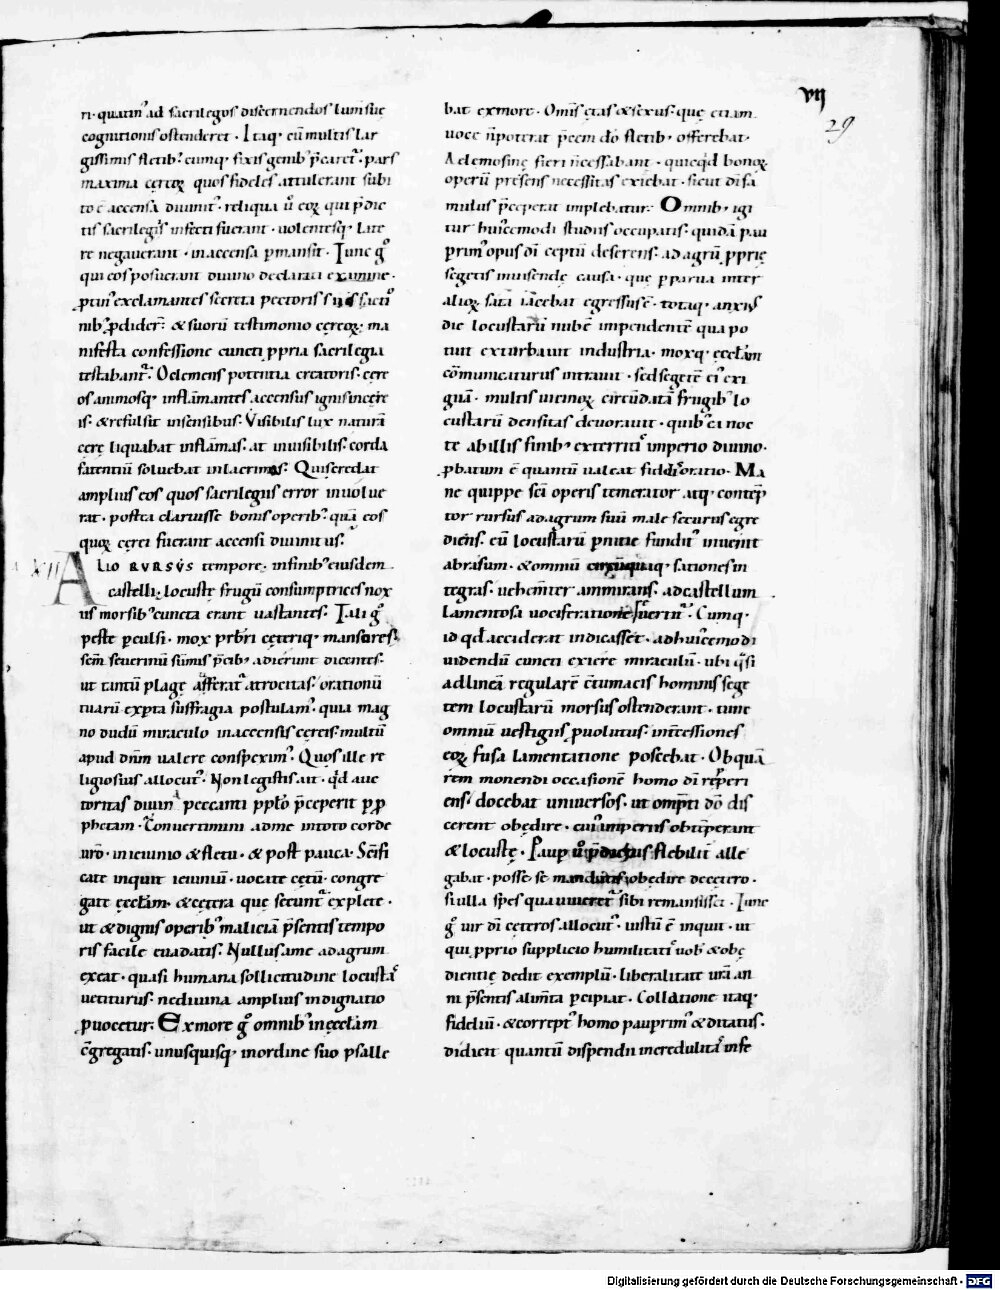 VII
29
ri· quatin᷒ ad sacrilegos discernendos lum̄ suę
cognitionis ostenderet· Itaq; cū multis lar
gissimis fletib᷒ cumq; fixis genib᷒ p̄caret᷒· pars
maxima cereoꝝ quos fideles attulerant subi
to ē accensa diuinit᷒· reliqua ů eoꝝ qui p̄dic
tis sacrilegiis infecti fuerant· uolentesq; late
re negauerant· inaccensa ꝑmansit· Tunc gͦ
qui eos posuerant diuino declarati examine·
ꝓtin᷒ exclamantes secreta pectoris suis sactis᷒
nib᷒ ꝓdider̄· & suorū testimonio cereoꝝ· ma
nifesta confessione cuncti ꝓpria sacrilegia
testabant᷒· O clemens potentia creatoris· cere
os animosq; inflāmantes accensus ignis incere
is· & refulsit insensibus· Visibilis lux naturā
cerę liquabat inflāmas· at inuisibilis· corda
fatentiū soluebat in lacrimas· Quis credat
amplius eos quos sacrilegus error inuolue
rat· postea claruisse bonis operib᷒· quā eos
quoꝝ cerei fuerant accensi diuinitus·
XII
ALIO RVRSVS tempore· infinib᷒ eiusdem
castelli· locustę frugū consumptrices nox
iis morsib᷒ cuncta erant uastantes· Tali gͦ
peste ꝑculsi· mox prb̄ri cęteriq; mansores·
sc̄m seuerinū sūmis p̄cib᷒ adierunt dicentes·
ut tantū plagę afferat᷒ atrocitas· orationū
tuarū exꝑta suffragia postulam᷒· quia mag
no dudū miraculo inaccensis cereis· multū
apud dn̄m ualere conspexim᷒· Quos ille re
ligiosius allocut᷒· Non legistis ait· qđ auc
toritas diuina peccanti ppłō p̄ceperit ꝑ ꝓ
phetam· Conuertimini adme intoto corde
uro· in ieiunio & fletu· & post pauca· Sc̄ifi
cate inquit ieiuniū· uocate cetū· congre
gate ęcclam̄· & cętera que secunt᷒ explete·
ut & dignis operib᷒ maliciā p̄sentis tempo
ris facile euadatis· Nullus ame ad agrum
exeat· quasi humana sollicitudine locustaꝝ
uetiturus· ne diuina amplius indignatio
ꝓuocetur· Ex more gͦ omnib᷒ in ęccłam
c̄gregatis· unusquisq; in ordine suo psalle
bat exmore· Omīs ętas & sexus· que etiam
uoce n̄ poterat p̄cem dō fletib᷒ offerebat·
Aelemosinę fieri n̄ cessabant· quicqđ bonoꝝ
operū presens necessitas exiebat· sicut dī fa
mulus p̄ceperat implebatur· Omnib᷒ igi
tur huic̄emodi studiis occupatis· quidā pau
prim᷒ opus dī ceptū deserens· ad agrū ꝓprię
segetis inuisendę causa· que ꝑparua inter
alioꝝ sata iacebat egressus ē· totaq; anxius
die locustarū nubē impendentē qua po
tuit exturbauit industria· moxq; ęccłam
cōmunicaturus intrauit· sed segetē ei᷒ exi
guā· multis uicinoꝝ circūdatā frugib᷒ lo
custarū densitas deuorauit· quib᷒ ea noc
te ab illis finib᷒ exterritis imperio diuino·
ꝓbatum ē quantū ualeat fidelis oratio· Ma
ne quippe sc̄i operis temerator atq; contēp
tor rursus ad agrum suū male securus egre
diens· eū locustarū ꝑnicie fundit᷒ inuenit
abrasum· & omniū circūquaq; sationes in
tegras· uehem̄ter ammirans· ad castellum
lamentosa uociferatione reuertit᷒· Cumq;
id qđ acciderat indicasset· ad huic̄emodi
uidendū cuncti exiere miraculū· ubi q̄si
ad lineā regularē c̄tumacis hominis sege
tem locustarū morsus ostenderant· tunc
omniū uestigiis ꝓuolutus· int̄cessiones
eoꝝ fusa lamentatione poscebat· Ob quā
rem monendi occasionē homo dī repperi
ens· docebat uniuersos· ut omp̄ti dō dis
cerent obędire· cui᷒ imperiis obtēperant
& locustę· Paup ů p̄dictus flebilit̄ alle
gabat· posse se mandatis obędire decetero·
si ulla spes qua uiueret sibi remansisset· Tunc
gͦ uir dī cęteros allocut᷒· iustū ē inquit· ut
qui ꝓprio supplicio humilitatis uob᷒ & obę
dientię dedit exemplū· liberalitate urā an
ni p̄sentis alim̄ta ꝑcipiat· Collatione itaq;
fideliū· & corrept᷒ homo pauprim᷒ & ditatus·
didicit quantū dispendii incredulitas infe
Digitalisierung gefördert durch die Deutsche Forschungsgemeinschaft - DFG